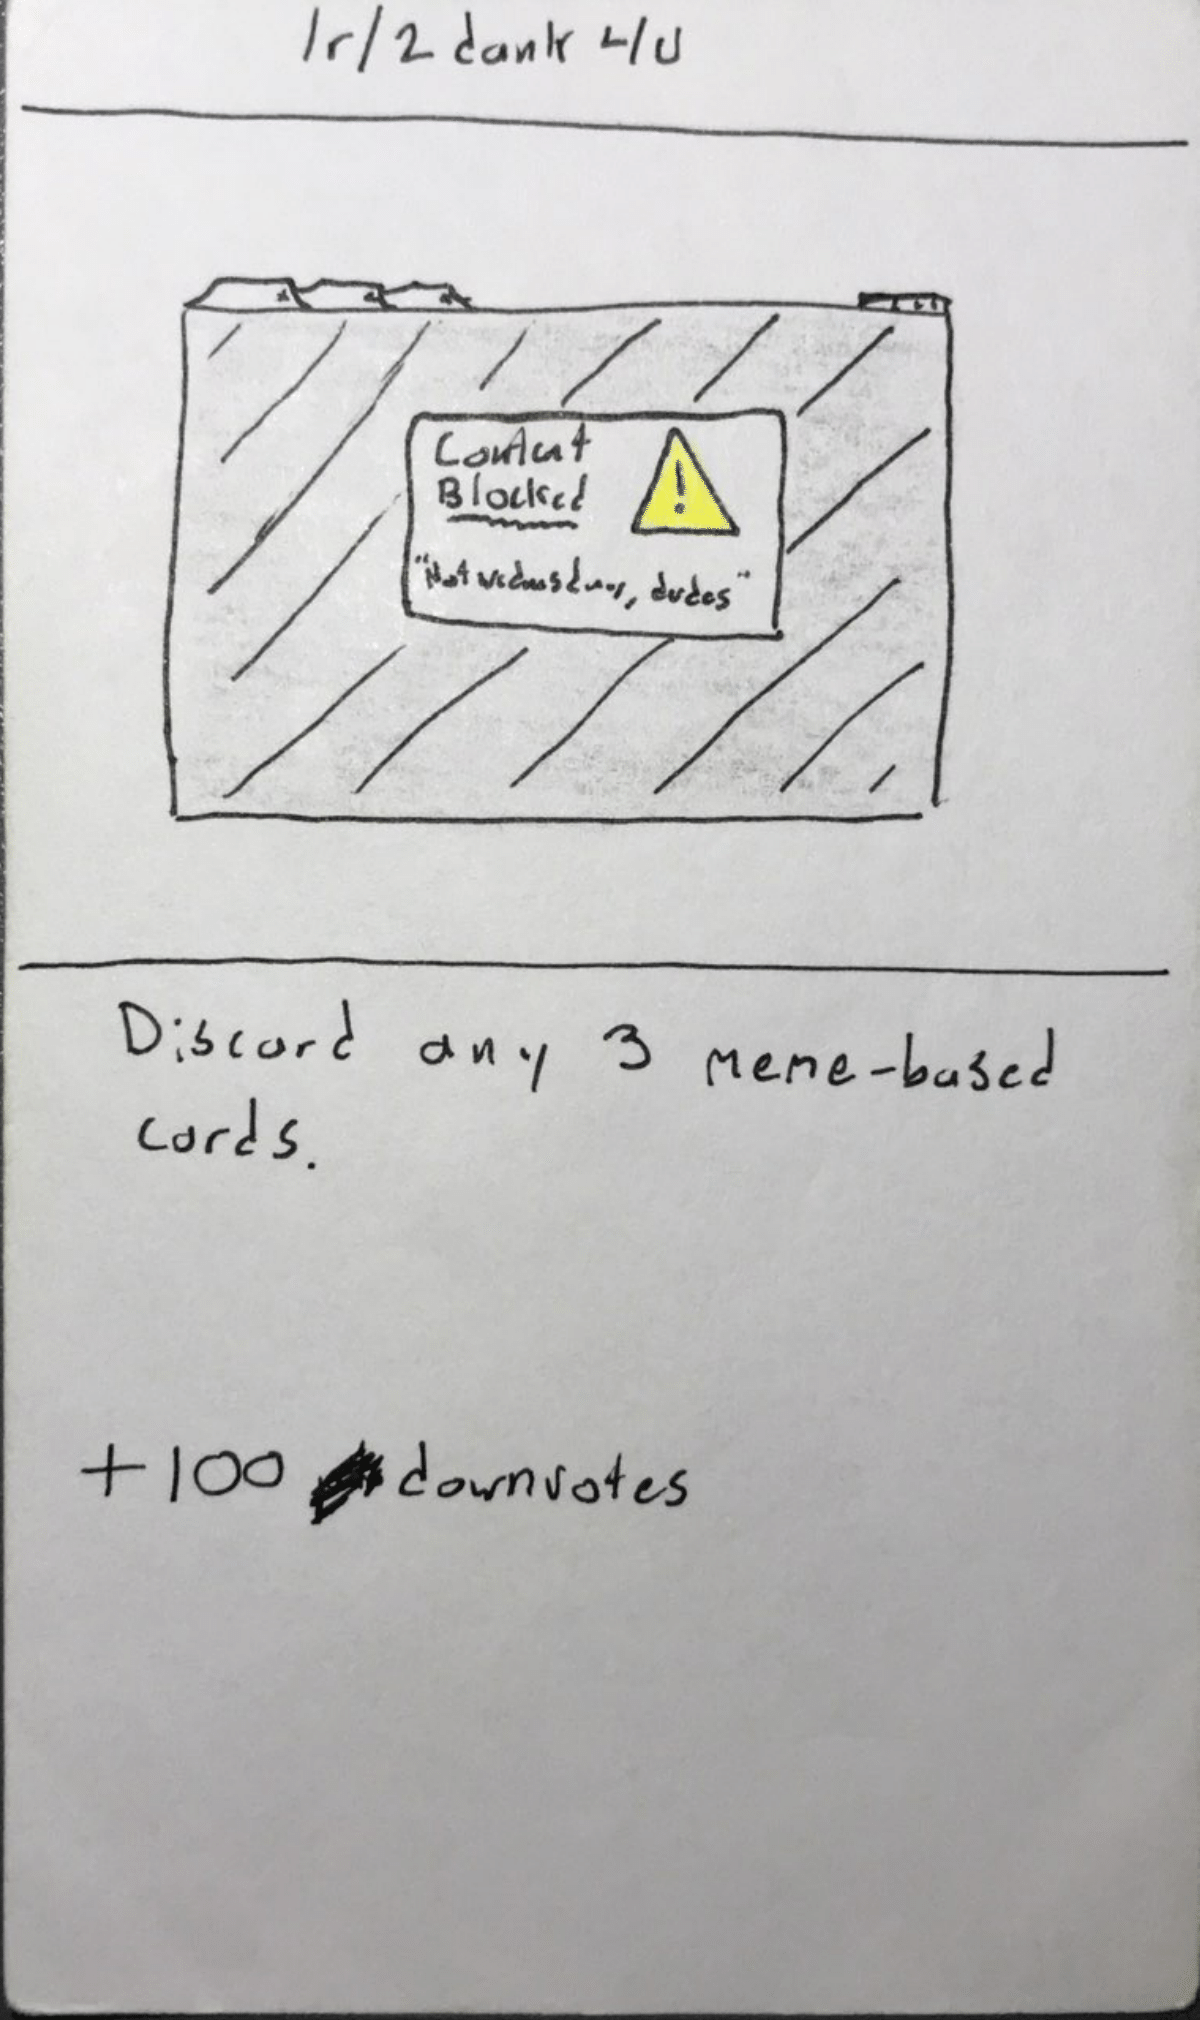 /r/2 dank 4/U
Content
Blocked
!
"Not wednesday, dudes"
Discard any 3 meme-based
cards.
+100 downvotes